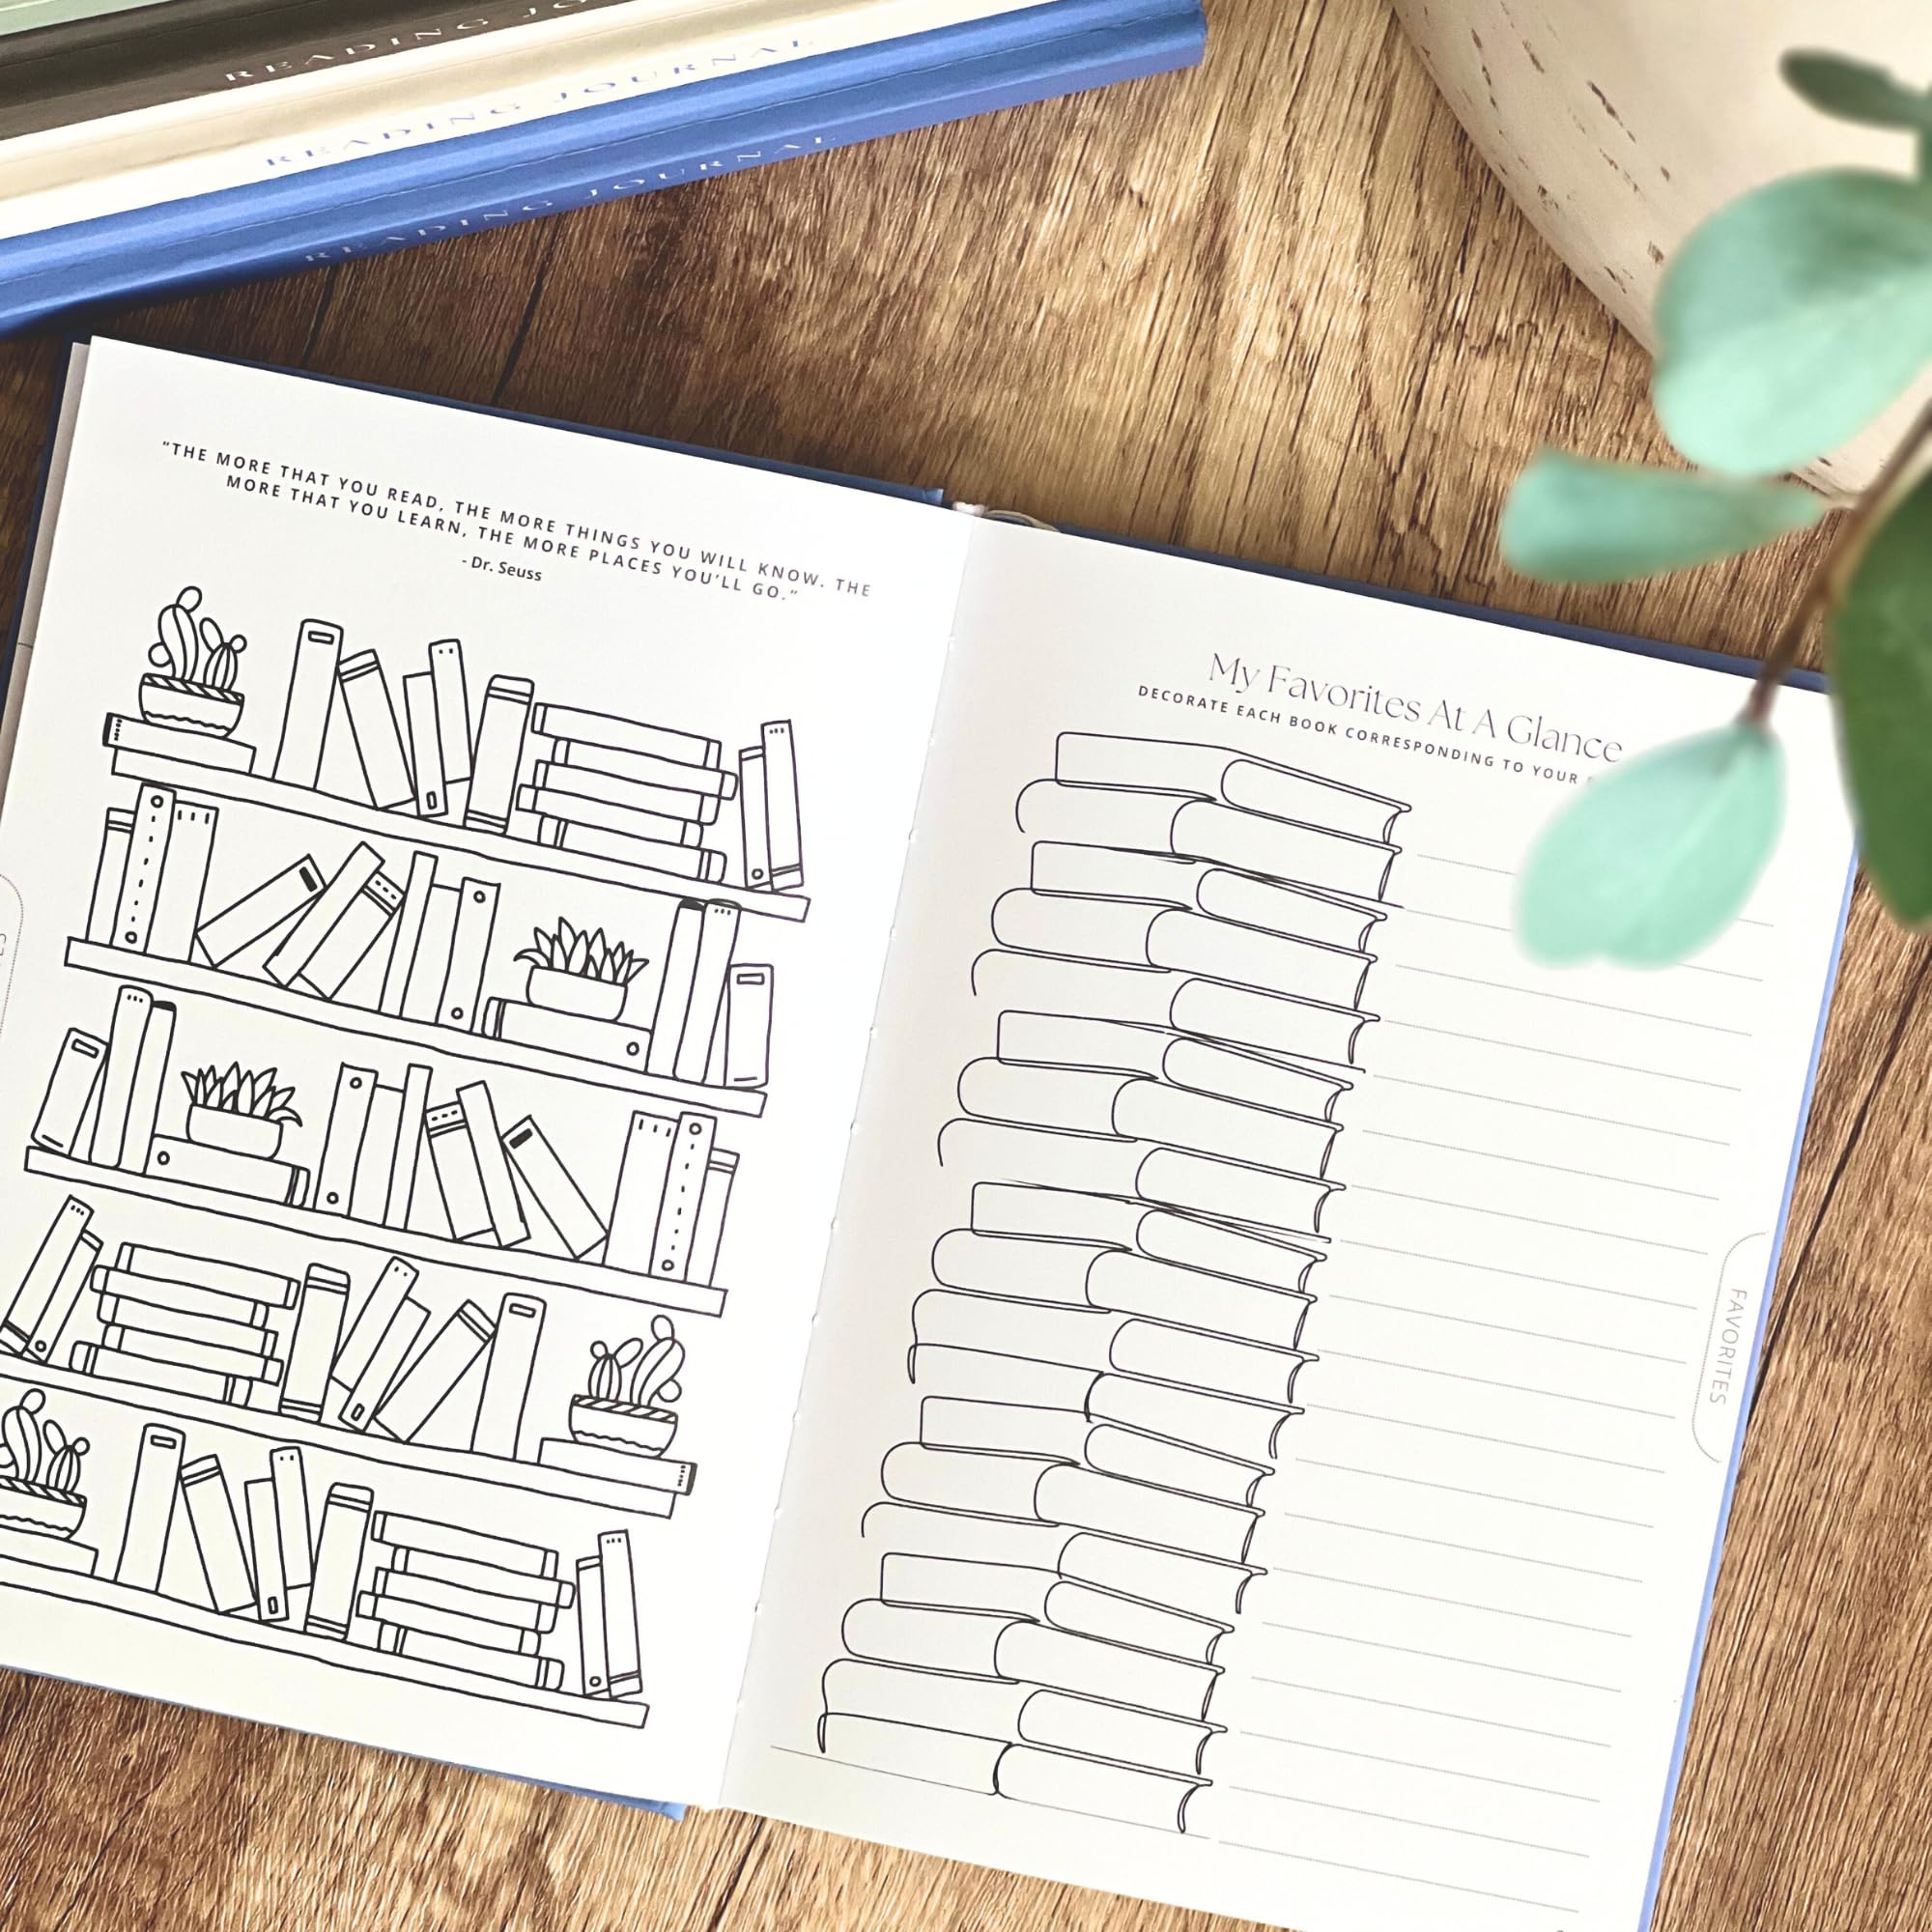 READING JO
READING JOURNAL
READING JOURNAL
"THE MORE THAT YOU READ, THE MORE THINGS YOU WILL KNOW. THE
MORE THAT YOU LEARN, THE MORE PLACES YOU'LL GO."
- Dr. Seuss
My Favorites At A Glance
DECORATE EACH BOOK CORRESPONDING TO YOUR
FAVORITES